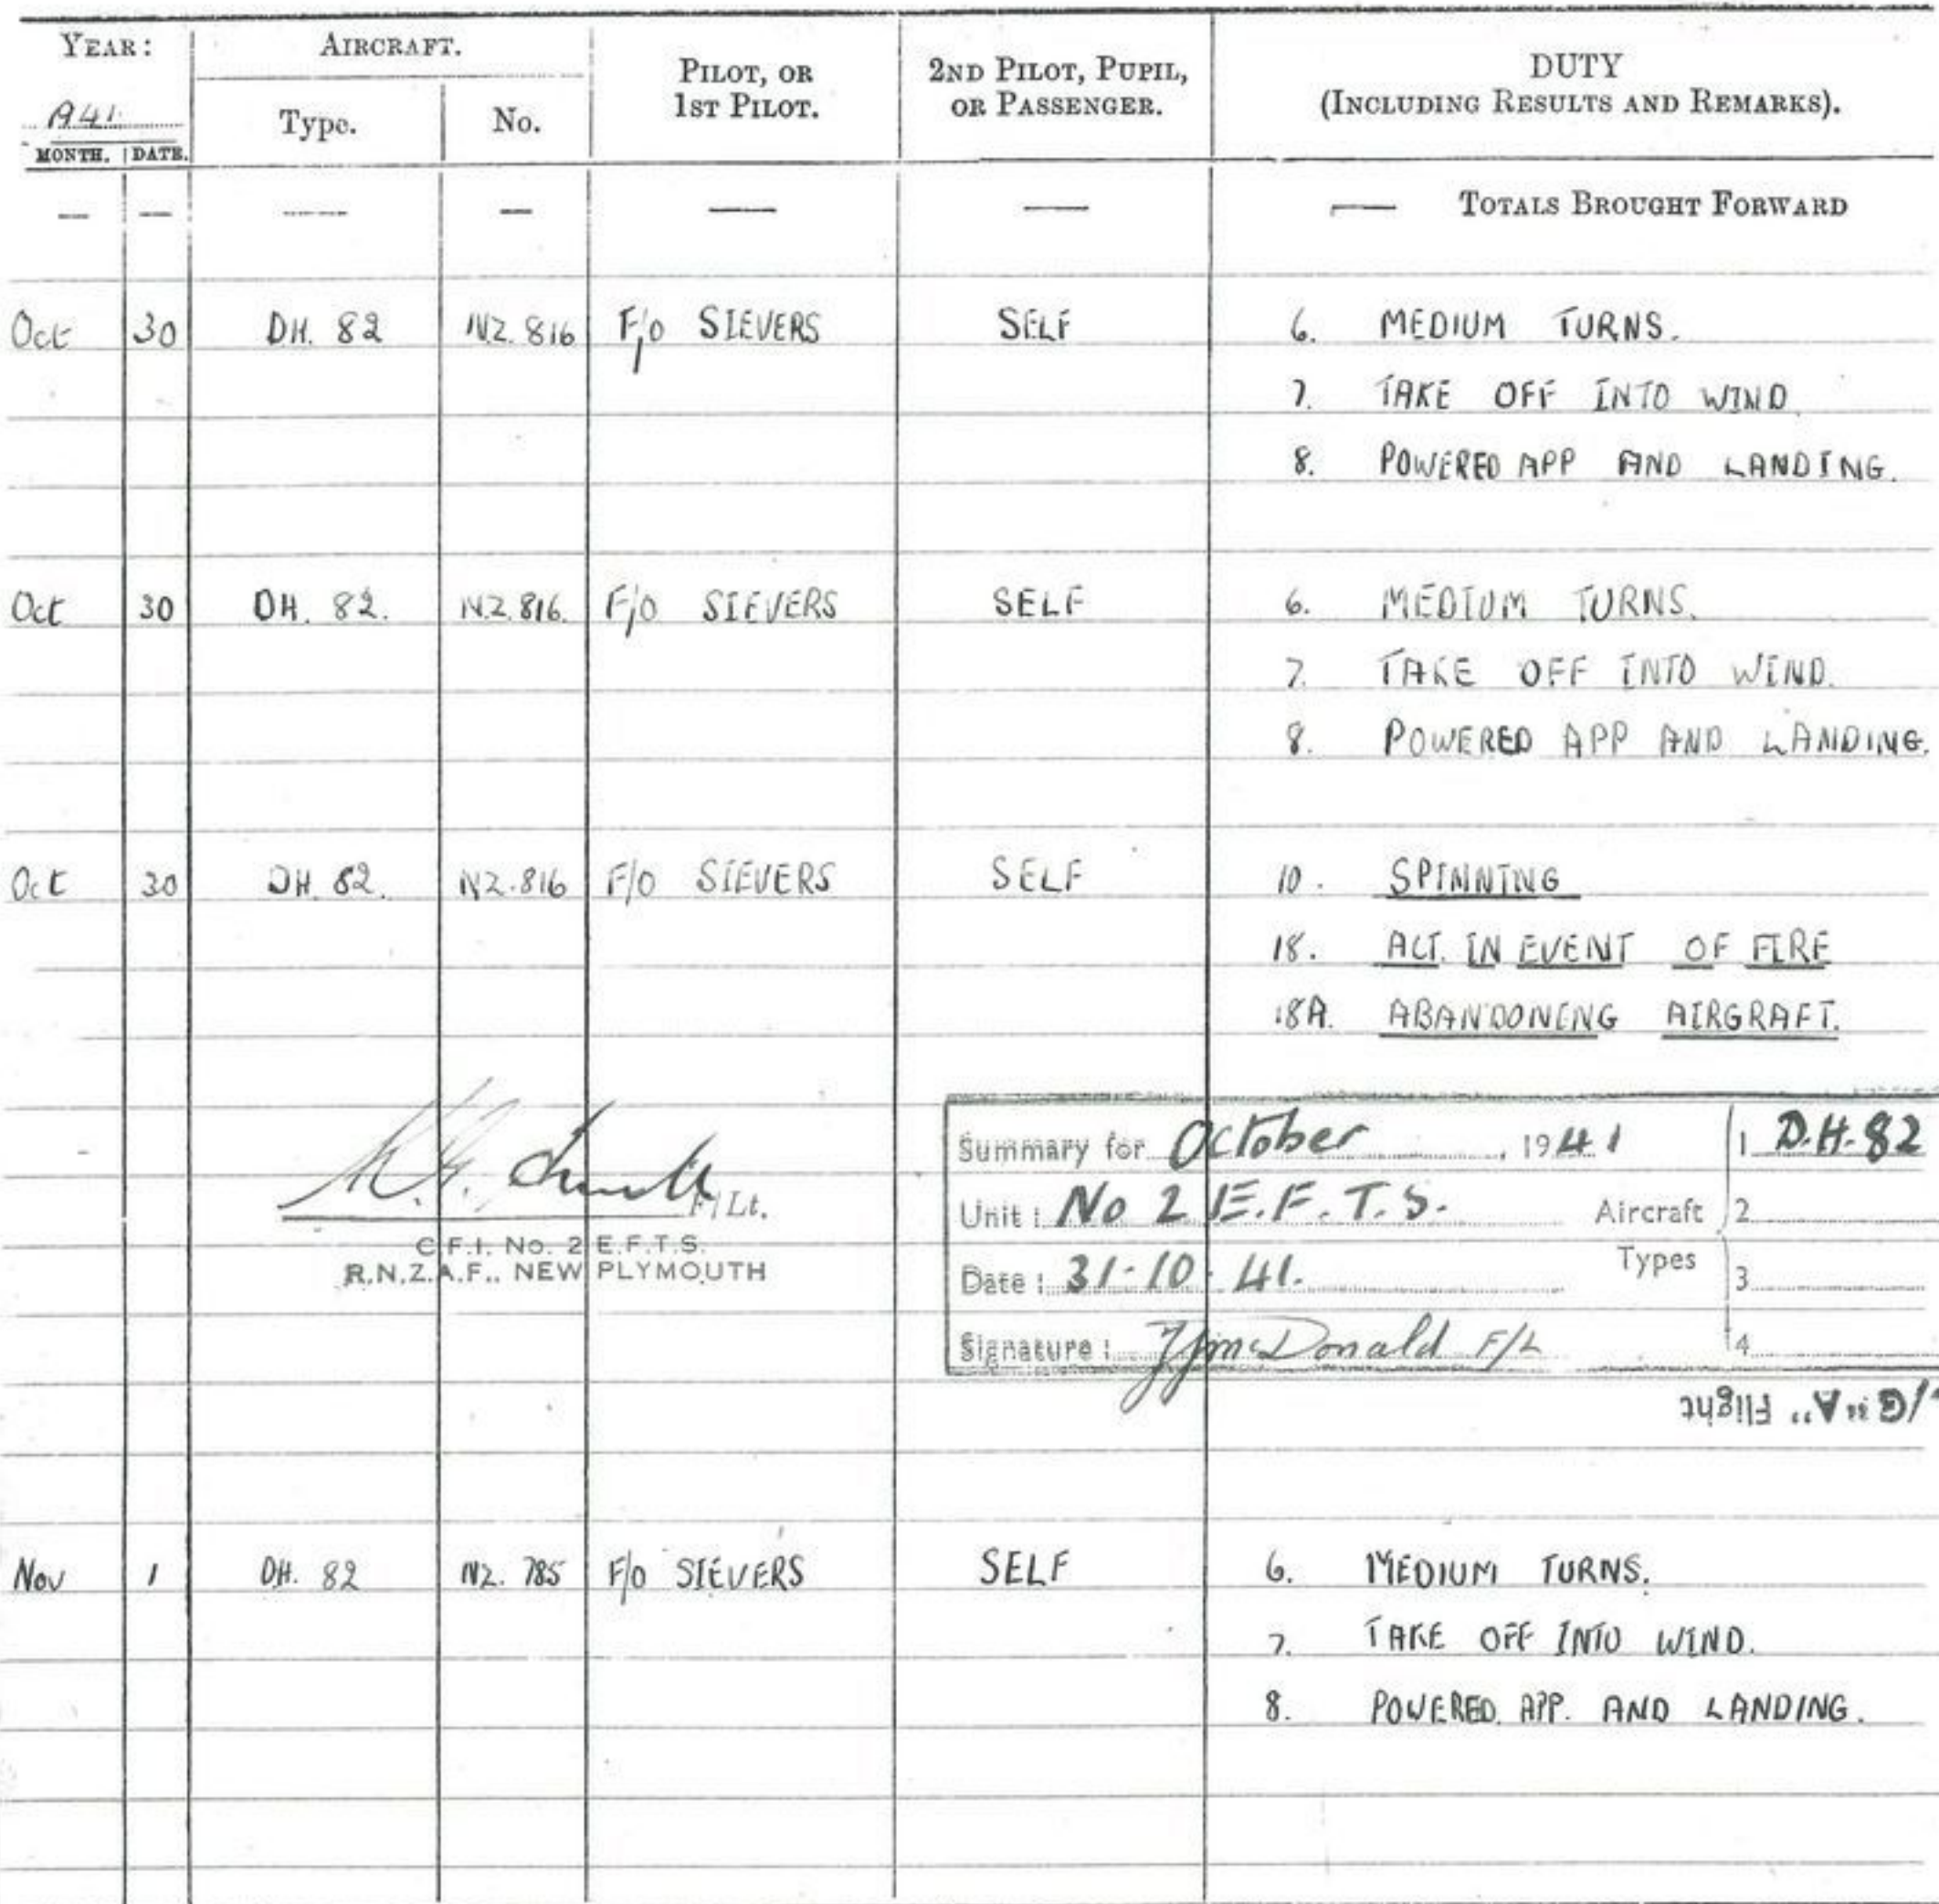 YEAR: AIRCRAFT. PILOT, OR 1ST PILOT. 2ND PILOT, PUPIL, OR PASSENGER. DUTY (INCLUDING RESULTS AND REMARKS).
1941 Type. No.
MONTH. DATE.
— — — — — — — TOTALS BROUGHT FORWARD
Oct 30 DH. 82 NZ. 816 F/O SIEVERS SELF 6. MEDIUM TURNS.
7. TAKE OFF INTO WIND
8. POWERED APP AND LANDING.
Oct 30 DH. 82. N.Z. 816. F/O SIEVERS SELF 6. MEDIUM TURNS.
7. TAKE OFF INTO WIND.
8. POWERED APP AND LANDING.
Oct 30 DH. 82. NZ. 816 F/O SIEVERS SELF 10. SPINNING
18. ACT. IN EVENT OF FIRE
18A. ABANDONING AIRGRAFT.
F/Lt.
C.F.I. No. 2 E.F.T.S.
R.N.Z.A.F., NEW PLYMOUTH
Summary for October, 1941 1 D.H.82
Unit: No 2 E.F.T.S. Aircraft 2
Date: 31-10-41. Types 3
Signature: McDonald F/L 4
"A" Flight
Nov 1 DH. 82 NZ. 785 F/O SIEVERS SELF 6. MEDIUM TURNS.
7. TAKE OFF INTO WIND.
8. POWERED. APP. AND LANDING.